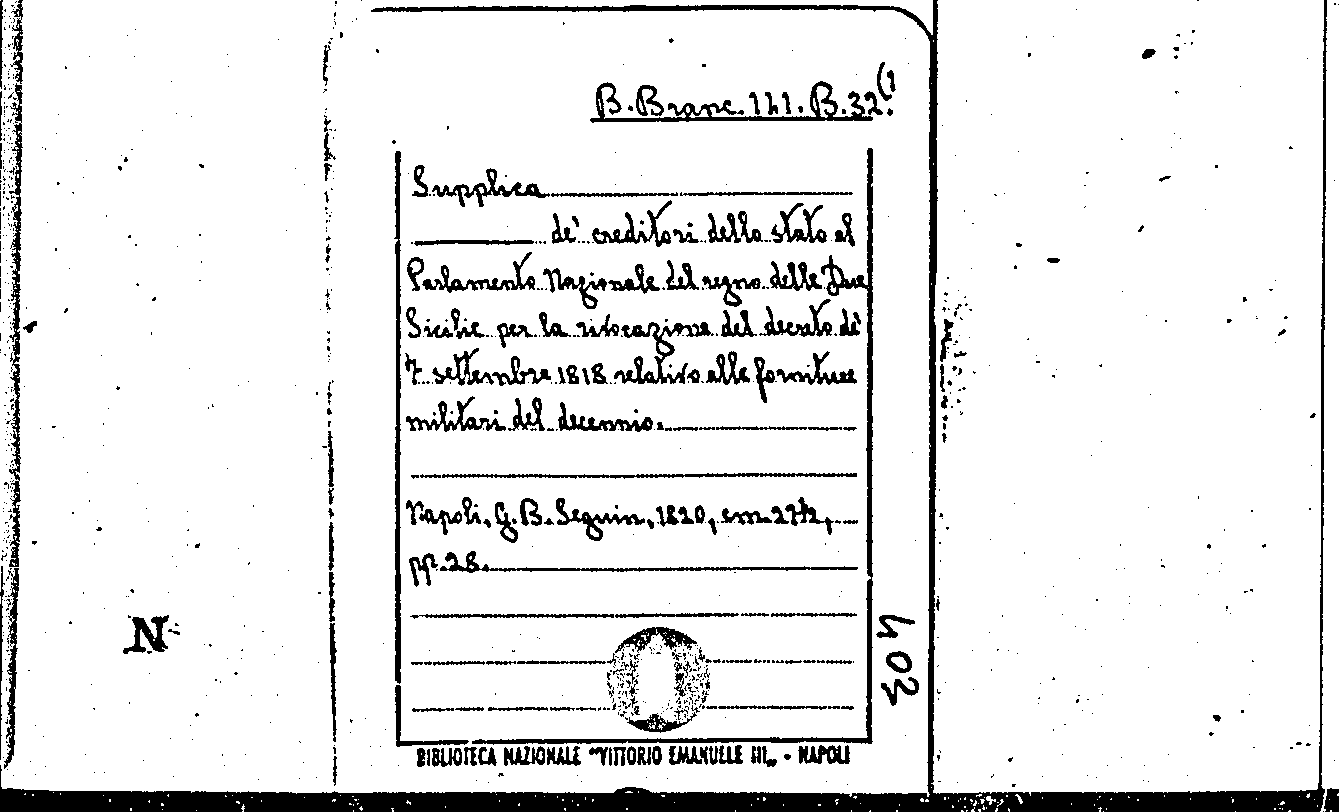 B. Branc. 141. B. 32(1
Supplica
de' creditori dello stato al
Parlamento Nazionale del regno delle Due
Sicilie per la rivocazione del decreto de'
7 settembre 1818 relativo alle forniture
militari del decennio.
Napoli, G. B. Seguin, 1820, cm. 27½,
pp. 28.
403
N
BIBLIOTECA NAZIONALE "VITTORIO EMANUELE III„ - NAPOLI